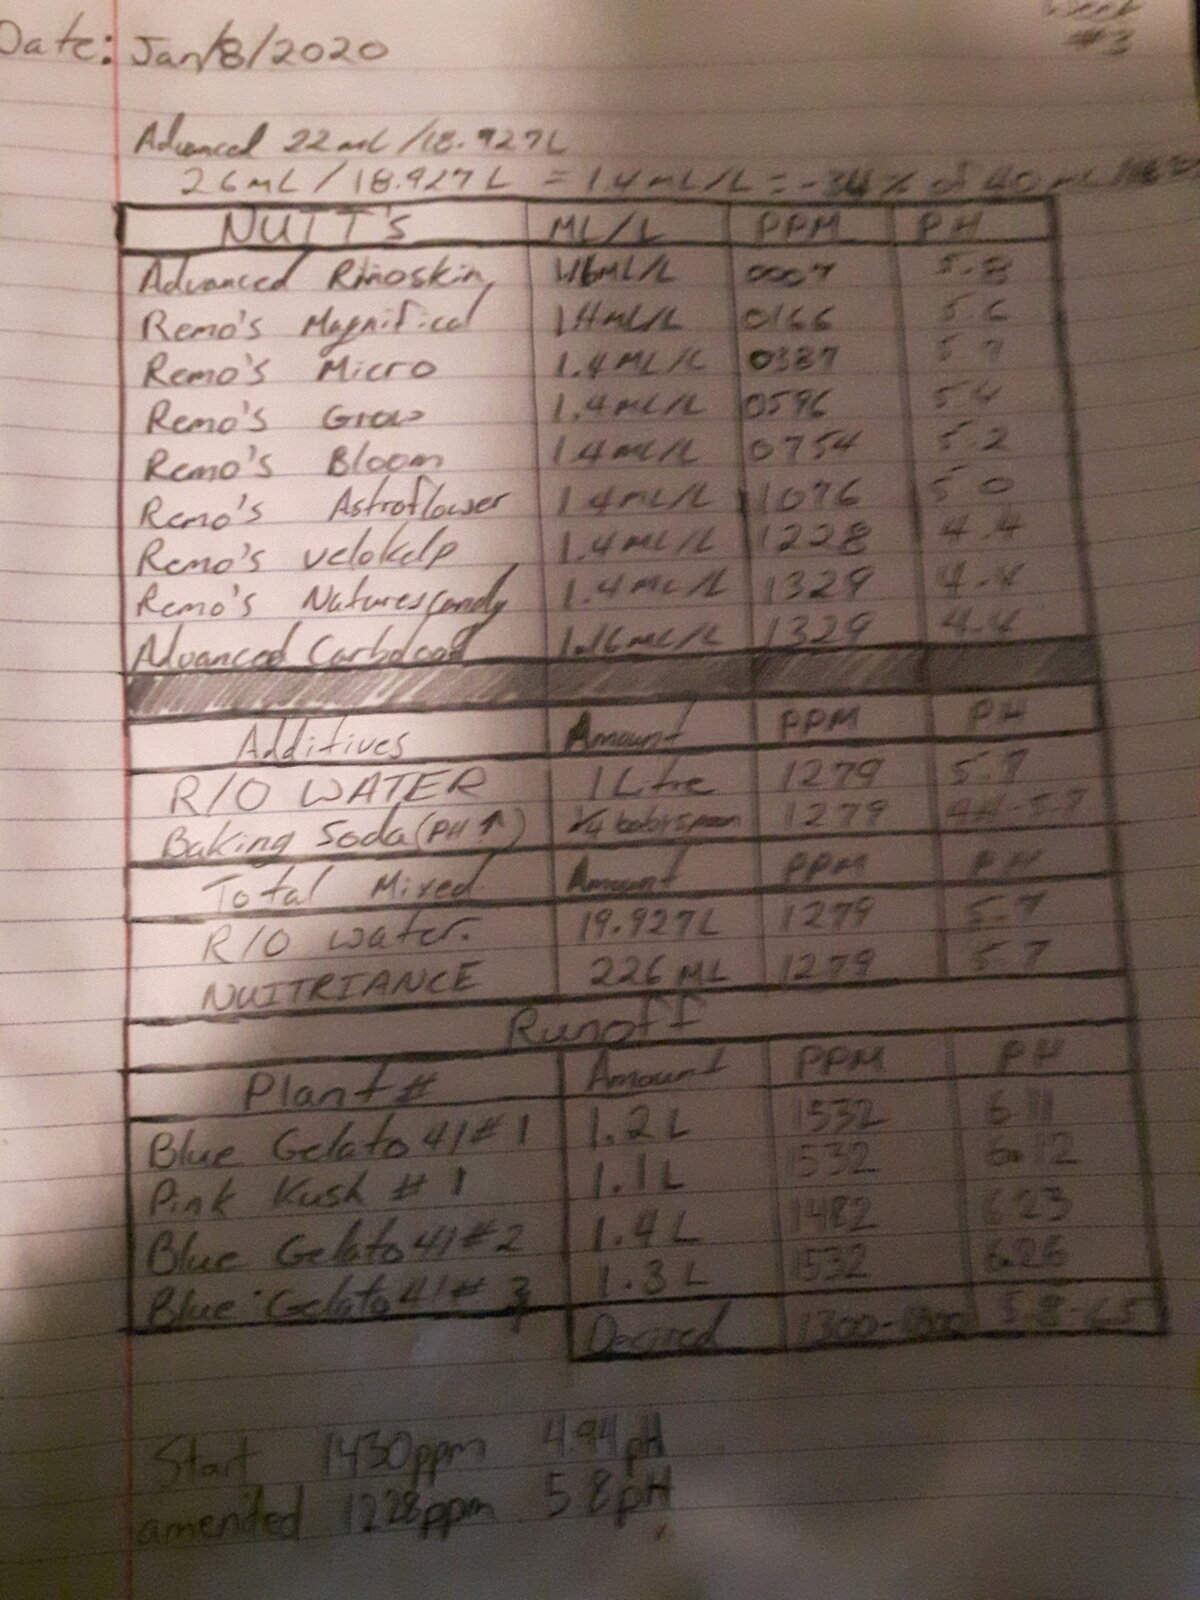 Week
Date: Jan/8/2020 #3
Advanced 22mL/18.927L
26mL/18.927L = 1.4mL/L = -34% of 40mL
NUITT's ML/L PPM PH
Advanced Rhinoskin 1.16ML/L 0007 5.8
Remo's Magnifical 1.4ML/L 0166 5.6
Remo's Micro 1.4ML/L 0387 5.7
Remo's Grow 1.4ML/L 0596 5.4
Remo's Bloom 1.4ML/L 0754 5.2
Remo's Astroflower 1.4ML/L 1076 5.0
Remo's velokelp 1.4ML/L 1228 4.4
Remo's NaturesCandy 1.4ML/L 1329 4.4
Advanced Carboload 1.16ML/L 1329 4.4
Additives Amount PPM PH
R/O WATER 1 Litre 1279 5.7
Baking Soda (PH ↑) 1/4 baby spoon 1279 4.4-5.7
Total Mixed Amount PPM PH
R/O Water. 19.927L 1279 5.7
NUITRIANCE 226ML 1279 5.7
Runoff
Plant # Amount PPM PH
Blue Gelato 41 #1 1.2L 1532 6.11
Pink Kush #1 1.1L 1532 6.12
Blue Gelato 41 #2 1.4L 1482 6.23
Blue Gelato 41 #3 1.3L 1532 6.26
Decired 1300-1800 5.8-6.5
Start 1430ppm 4.94pH
amended 1228ppm 5.8pH